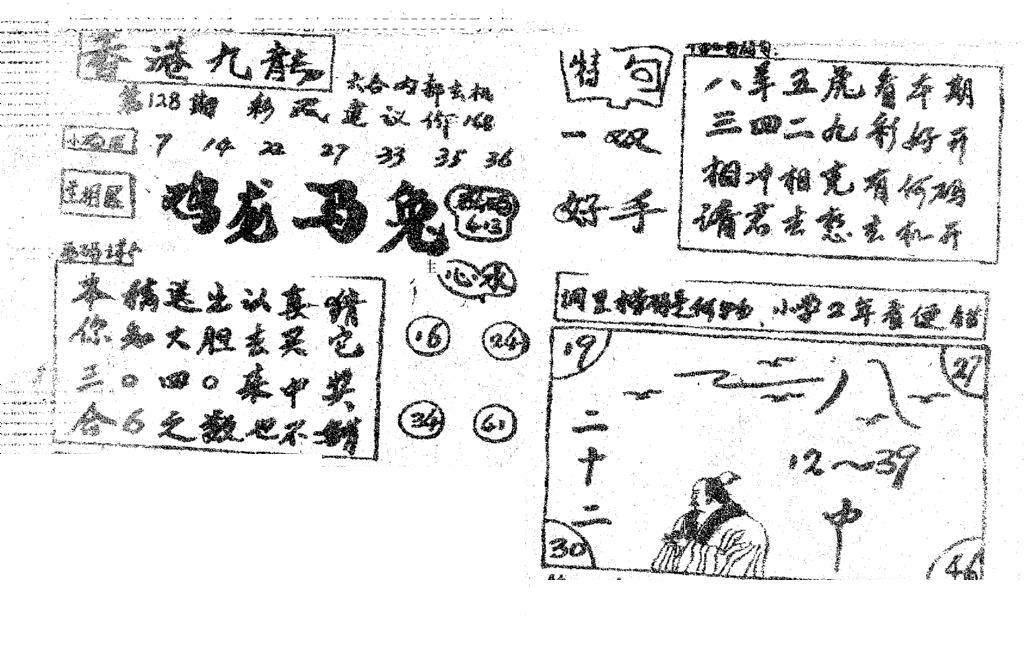 香港九龍
第128期 彩民建议价168
六合内部玄机
7 14 22 27 33 35 36
鸡龙马兔
613
心水
本搞送出认真猜
你知大胆去买它
三〇四〇来中奖
合6之数也不错
16 24
34 61
特句
一双
好手
八羊五虎看本期
三四二九彩好开
相冲相克有何码
请君去想玄机开
小学2年看便错
19 27
八
二十二
12~39
中
30 46